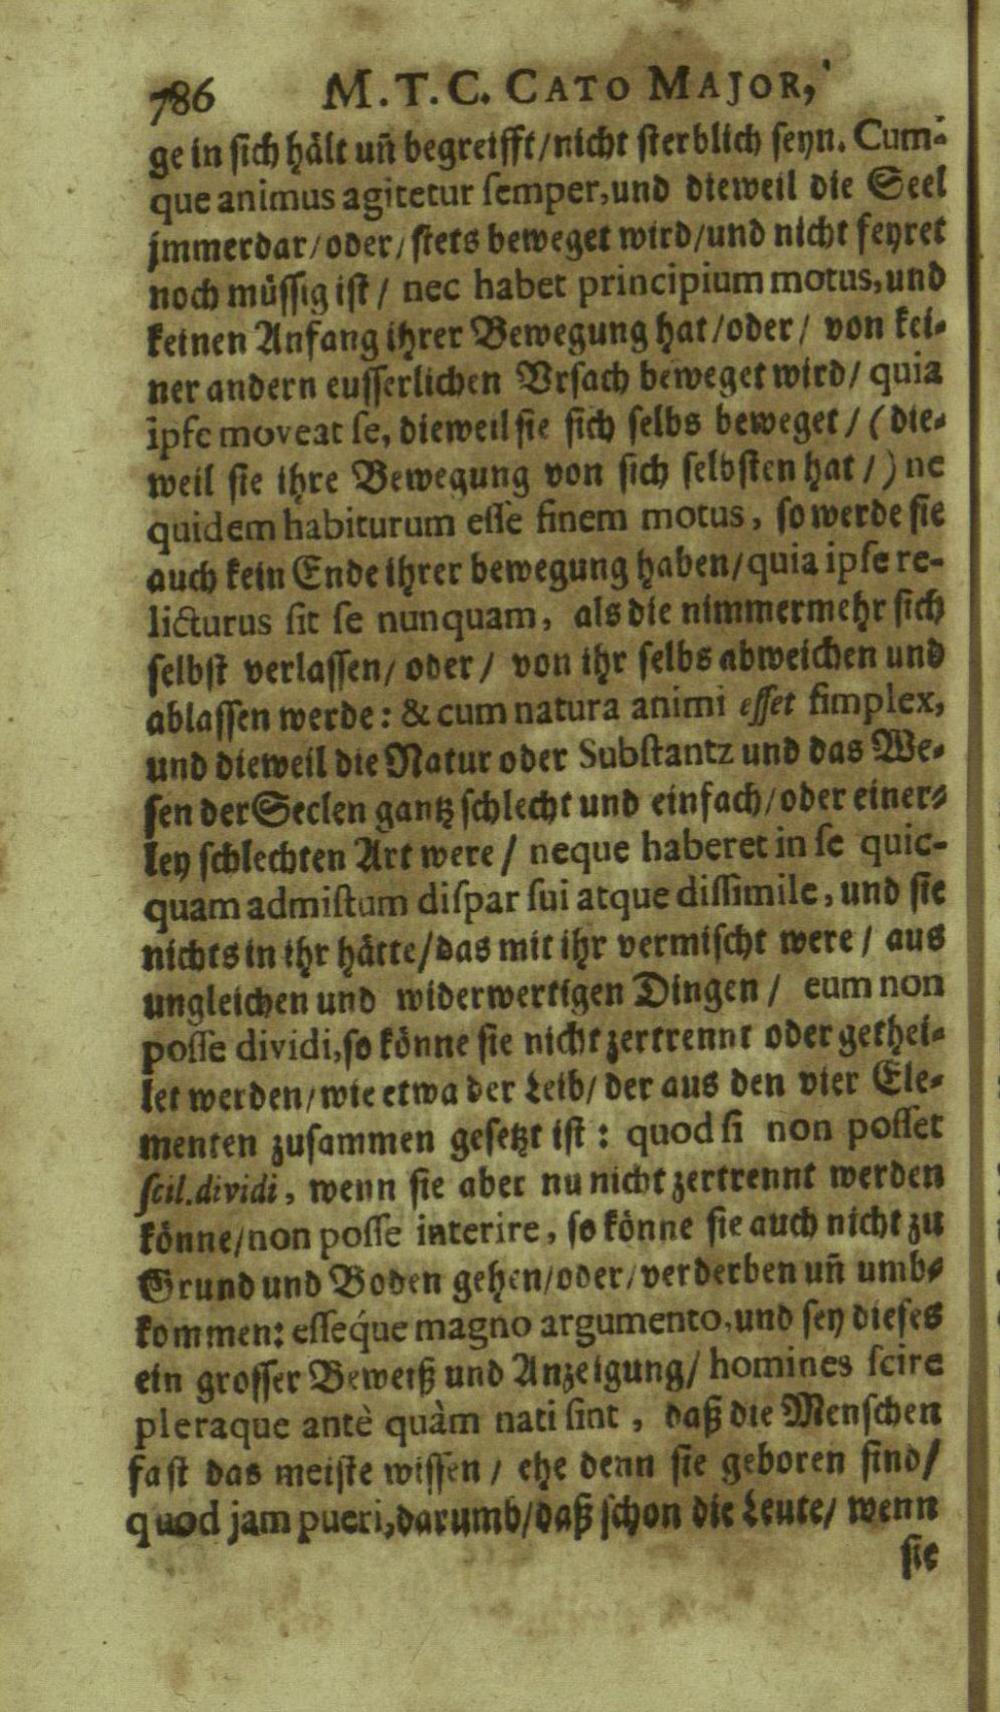 786 M.T.C. CATO MAJOR,
ge in ſich hält uñ begreifft/nicht ſterblich ſeyn. Cum-
que animus agitetur ſemper, und dieweil die Seel
jmmerdar/oder/ſtets beweget wird/und nicht feyret
noch müſſig iſt/ nec habet principium motus, und
keinen Anfang ihrer Bewegung hat/oder/ von kei-
ner andern euſſerlichen Vrſach beweget wird/ quia
ipſe moveat ſe, dieweil ſie ſich ſelbs beweget/ (die-
weil ſie ihre Bewegung von ſich ſelbſten hat/) ne
quidem habiturum eſſe finem motus, ſo werde ſie
auch kein Ende ihrer bewegung haben/quia ipſe re-
licturus ſit ſe nunquam, als die nimmermehr ſich
ſelbſt verlaſſen/ oder/ von ihr ſelbs abweichen und
ablaſſen werde: & cum natura animi eſſet ſimplex,
und dieweil die Natur oder Subſtantz und das We-
ſen der Seelen gantz ſchlecht und einfach/oder einer-
ley ſchlechten Art were/ neque haberet in ſe quic-
quam admiſtum diſpar ſui atque diſſimile, und ſie
nichts in ihr hätte/das mit ihr vermiſcht were/ aus
ungleichen und widerwertigen Dingen/ eum non
poſſe dividi, ſo könne ſie nicht zertrennt oder gethei-
let werden/wie etwa der Leib/ der aus den vier Ele-
menten zuſammen geſetzt iſt: quod ſi non poſſet
ſcil. dividi, wenn ſie aber nu nicht zertrennt werden
könne/non poſſe interire, ſo könne ſie auch nicht zu
Grund und Boden gehen/oder/verderben uñ umb-
kommen: eſſéque magno argumento, und ſey dieſes
ein groſſer Beweiß und Anzeigung/ homines ſcire
pleraque antè quàm nati ſint, daß die Menſchen
faſt das meiſte wiſſen/ ehe denn ſie geboren ſind/
quod jam pueri, darumb/daß ſchon die Leute/ wenn
ſie